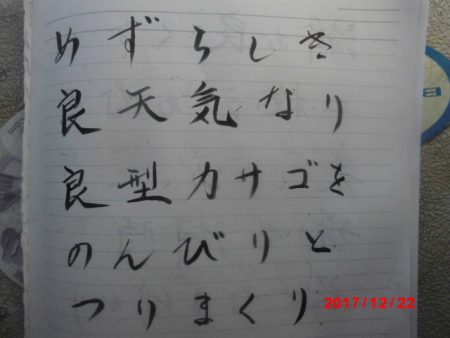 めずらしき
良天気なり
良型カサゴを
のんびりと
つりまくり
2017/12/22